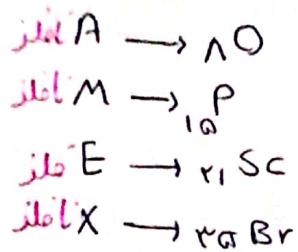 نافلز A → ₈O
نافلز M → ₁₅P
فلز E → ₂₁Sc
نافلز X → ₃₅Br